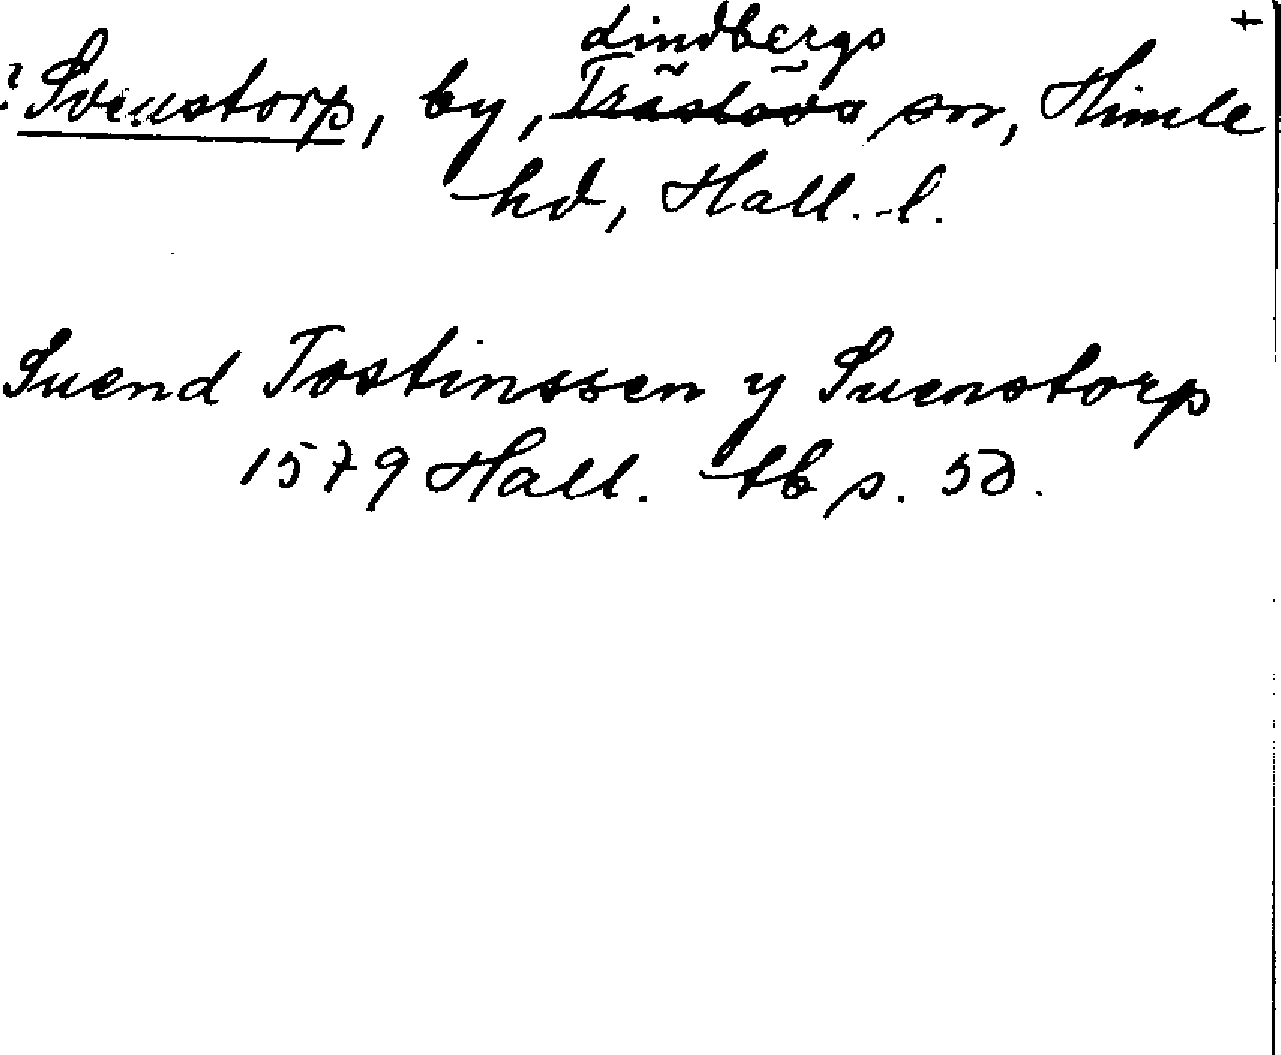 +
Lindbergs
? Svenstorp, by, Träslövs sn, Himle
hd, Hall. l.
Suend Tostinssen y Suenstorp
1579 Hall. tb p. 50.